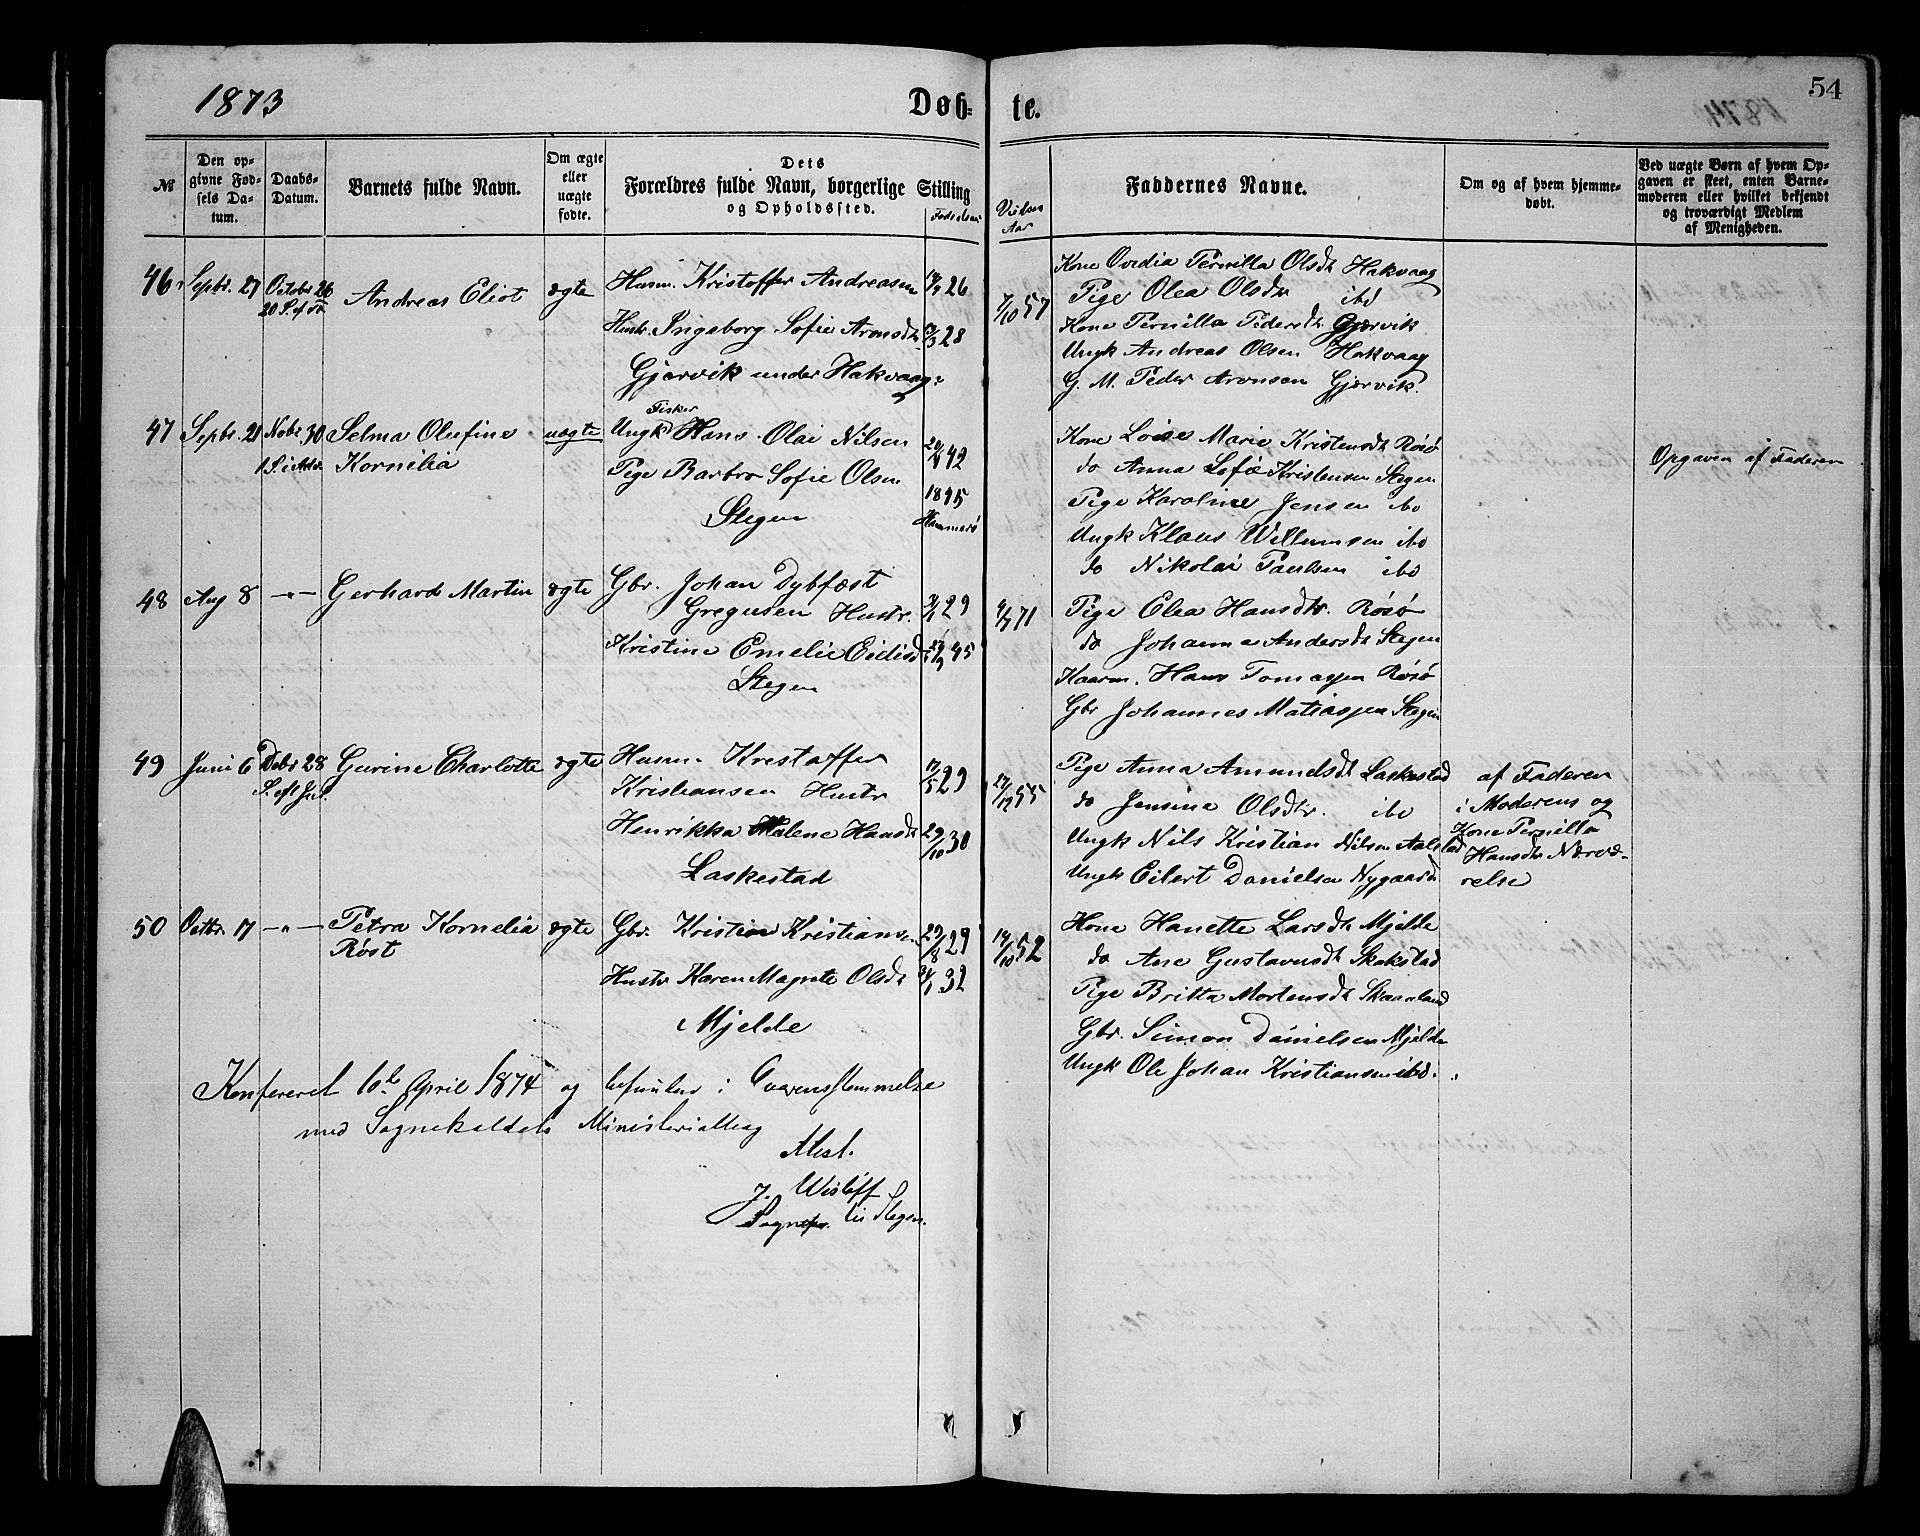 1873
Døb-
te.
54
№
Den op-
givne Fød-
sels Da-
tum.
Daabs-
Datum.
Barnets fulde Navn.
Om ægte
eller
uægte
fødte.
Dets
Forældres fulde Navn, borgerlige Stilling
og Opholdssted.
Fødselsaar
Vielses
Aar
Faddernes Navne.
Om og af hvem hjemme-
døbt.
Ved uægte Børn af hvem Op-
gaven er skeet, enten Barne-
moderen eller hvilket bekjendt
og troværdigt Medlem
af Menigheden.
46 Septbr. 27 Octobr 26
20 S. ef. Tr
Andreas Eliot
ægte
Husm. Kristoffer Andreasen 26
Hustr. Ingeborg Sofie Aronsdtr 28
Gjørvik under Hakvaag
7/10 57
Kone Ovedia Pernilla Olsdtr Hakvaag
Pige Olea Olsdtr ibd
Kone Pernilla Pedersdtr Gjørvik
Ungk Andreas Olsen Hakvaag
G. M. Peder Aronsen Gjørvik
47 Septbr. 21 Novbr. 30
1 S. i Adv.
Selma Olufine
Kornilia
uægte
Fisker
Ungk Hans Olai Nilsen 42
Pige Barbro Sofie Olsen 1845
Stegen Hammerø
Kone Loise Marie Kristensdtr Røsø
do Anna Sofie Kristensen Stegen
Pige Karoline Jensen ibd
Ungk Klaus Willumsen ibd
do Nikolai Paulsen ibd
Opgaven af Faderen
48 Aug 8 -"-
Gerhard Martin
ægte
Gbr. Johan Dybfest
Gregusen Hustr. 29
Kristine Emelie Eidisd 45
Stegen
71
Pige Elea Hansdtr. Røsø
do Johanna Andersdtr Stegen
Kaarm. Hans Tomassen Røsø
Gbr Johannes Matiassen Stegen
49 Juni 6 Debr 28
S. eft Jul.
Gurine Charlotte
ægte
Husm. Krestoffer
Kristiansen Hustr 17/5 29
Henrikka Malene Hansdtr 29/10 30
Laskestad
27/12 55
Pige Anna Amundsdtr Laskestad
do Jensine Olsdtr. ibd
Ungk Nils Kristian Nilsen Aalstad
Ungk Eilert Danielsen Nygaard
af Faderen
i Moderens og
Kone Pernilla
Hansdtr Nærvæ-
relse
50 Octbr. 17 -"-
Petra Kornelia
Røst
ægte
Gbr. Kristian Kristiansen 29/8 29
Hustr Karen Magrete Olsdtr 24/1 32
Mjelde
14/10 52
Kone Hanette Larsdtr Mjelde
do Ane Gustavusdtr Skakstad
Pige Britta Mortensdtr Skaanland
Gbr. Simon Danielsen Mjelde
Ungk Ole Johan Kristiansen ibd.
Konfereret 10de April 1874 og befunden i Overensstemmelse
med Sognekaldets Ministerialbog
Attest.
J. Wisløff
Sognepr. til Stegen.